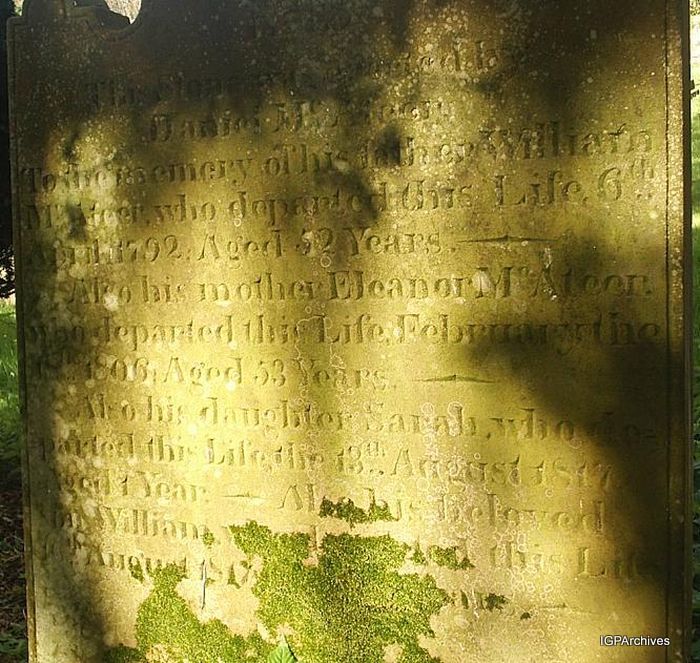 This Stone
Daniel McAteer
To the memory of his father William
McAteer, who departed this Life, 6th
April 1792, Aged 52 Years.
Also his mother Eleanor McAteer,
who departed this Life, February the
1806, Aged 53 Years.
Also his daughter Sarah, who de-
parted this Life, the 13th August 1817
Aged 1 Year. Also his beloved
William this Life
August
IGPArchives